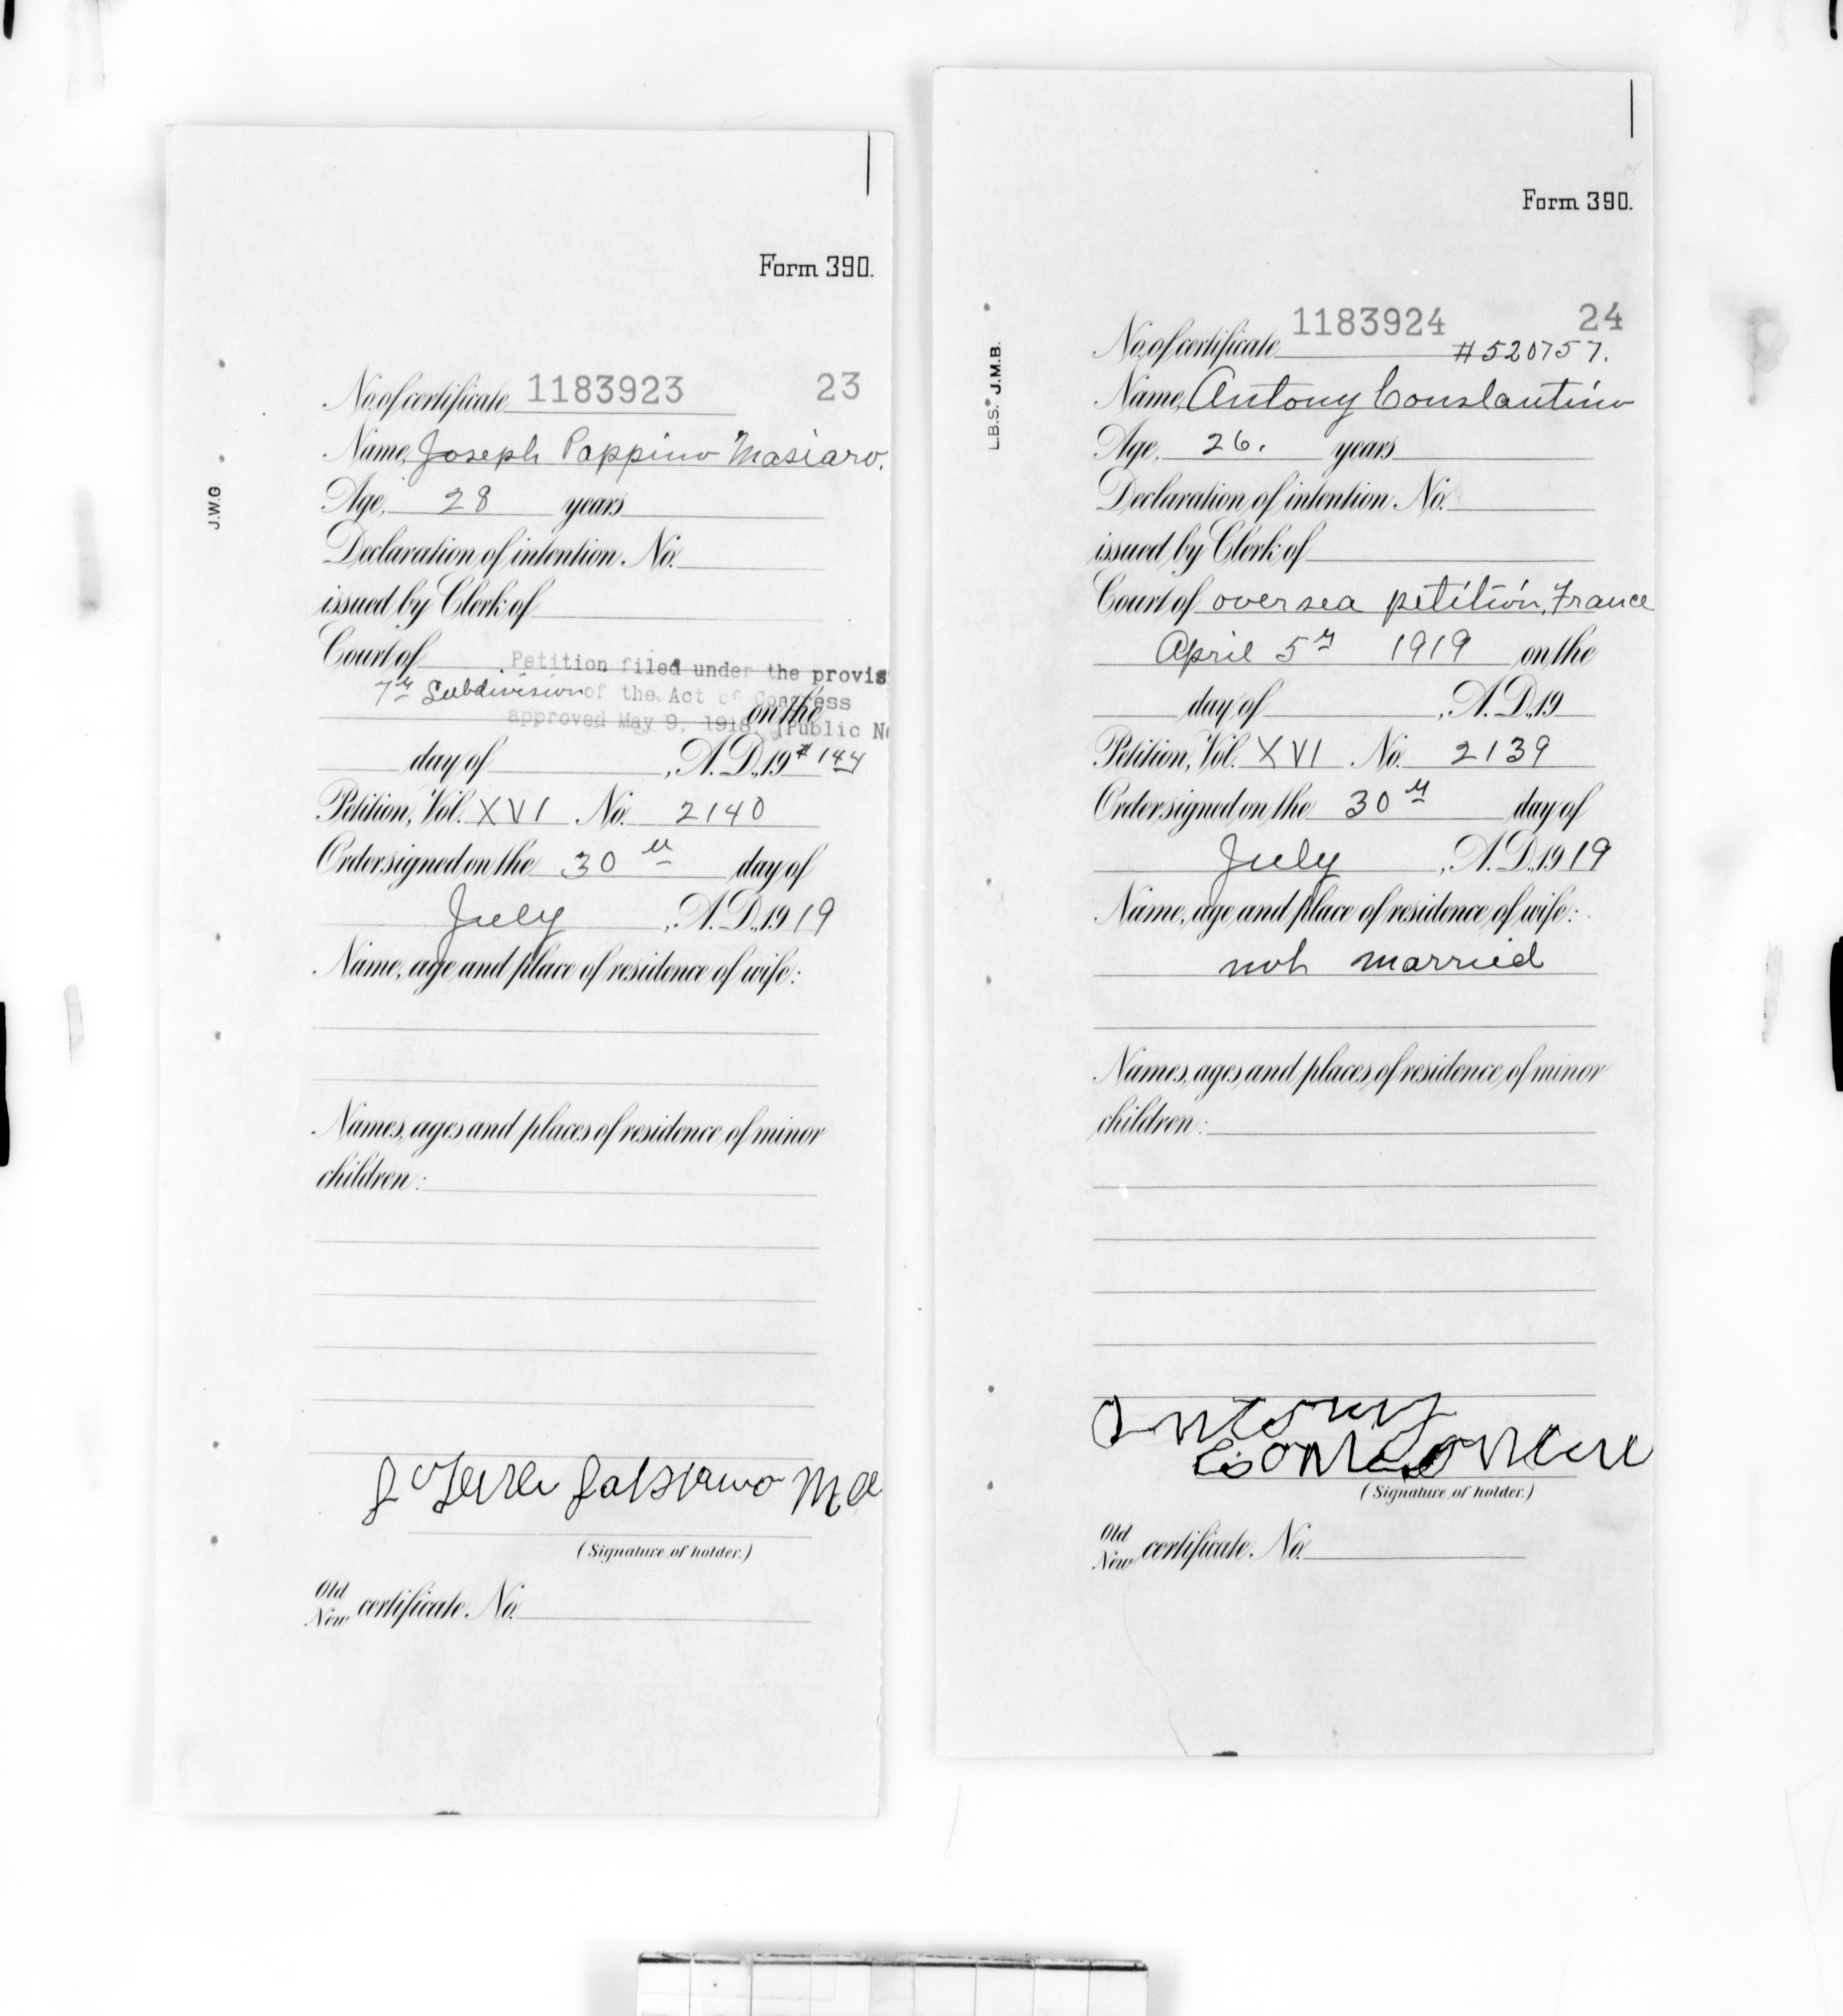 Form 390.
J.W.G
No. of certificate 1183923 23
Name, Joseph Pappino Masiaro.
Age, 28 years
Declaration of intention. No.
issued by Clerk of
Court of Petition filed under the provis
7th Subdivision of the Act of Congress
on the
approved May 9, 1918. (Public No
day of , A.D. 19 # 144
Petition, Vol. XVI No. 2140
Order signed on the 30th day of
July , A.D. 1919
Name, age and place of residence of wife:
Names, ages and places of residence of minor
children:
(Signature of holder.)
Old
New certificate. No.
Form 390.
L.B.S. J.M.B.
No. of certificate 1183924 24
#520757.
Name, Antony Constantino
Age, 26. years
Declaration of intention. No.
issued by Clerk of
Court of over sea petition, France
April 5th 1919 on the
day of , A.D. 19
Petition, Vol. XVI No. 2139
Order signed on the 30th day of
July , A.D. 1919
Name, age and place of residence of wife:
not married
Names, ages and places of residence of minor
children:
Antony
(Signature of holder.)
Old
New certificate. No.